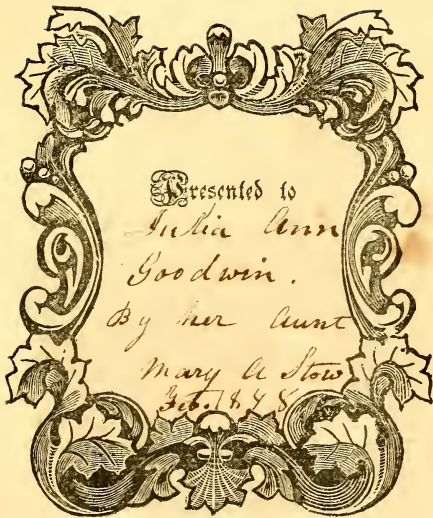 Presented to
Julia Ann
Goodwin.
By her Aunt
Mary A Stow
Feb. 1848